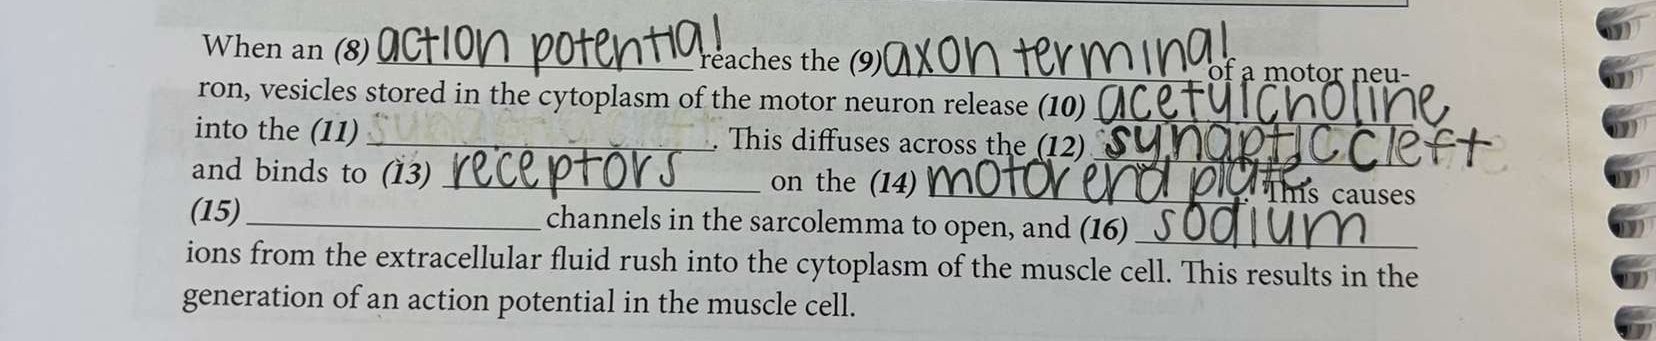 When an (8) action potential reaches the (9) axon terminal of a motor neu-
ron, vesicles stored in the cytoplasm of the motor neuron release (10) acetylcholine
into the (11) synaptic cleft. This diffuses across the (12) synaptic cleft
and binds to (13) receptors on the (14) motor end plate. This causes
(15) channels in the sarcolemma to open, and (16) sodium
ions from the extracellular fluid rush into the cytoplasm of the muscle cell. This results in the
generation of an action potential in the muscle cell.